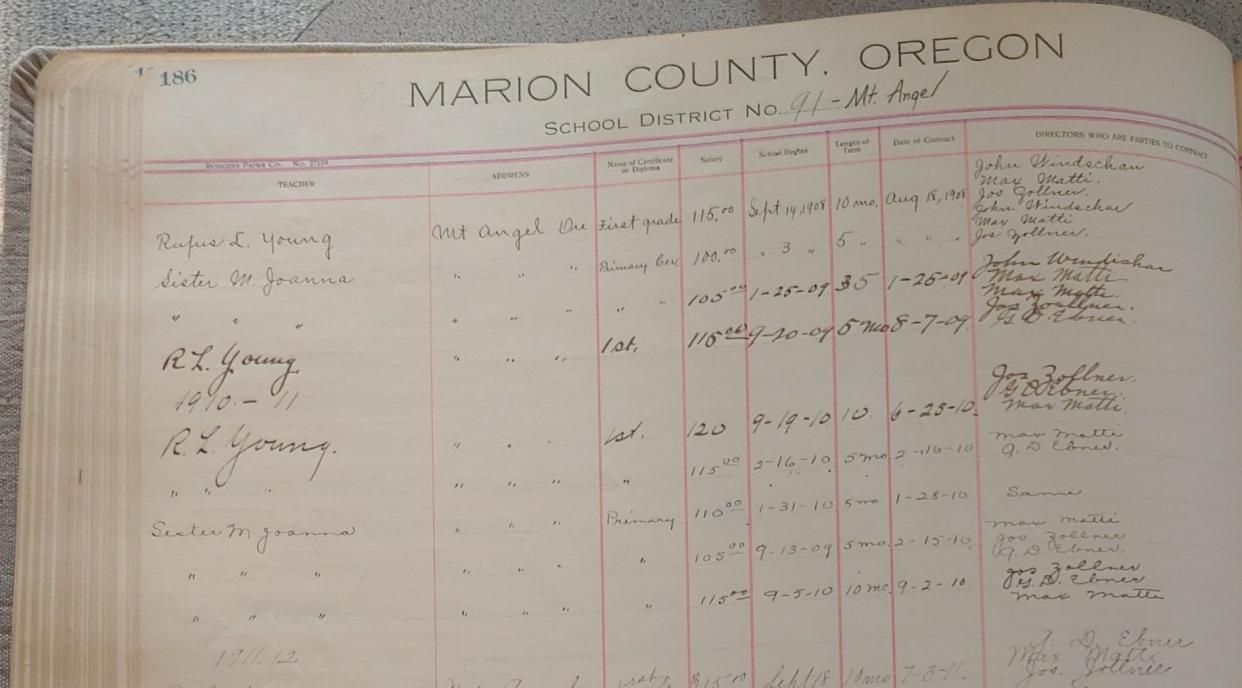 186
MARION COUNTY, OREGON
SCHOOL DISTRICT No. 91 - Mt. Angel
TEACHER ADDRESS Name of Certificate or Diploma Salary School Begins Length of Term Date of Contract DIRECTORS WHO ARE PARTIES TO CONTRACT
John Windschau
Max Matti.
Jos Zollner.
Rufus L. Young Mt Angel Ore First grade 115.00 Sept 14, 1908 10 mo. Aug 18, 1908
John Windschau
Max Matti
Jos Zollner.
Sister M. Joanna " " " Primary Cer. 100.00 " 3 " 5 " " " "
John Windishar
Max Matti
" " " " " " " " 105.00 1-25-09 5 1-25-09
Max Matti.
Jos Zoellner.
G D. Ebner.
R L. Young " " " 1st. 115.00 9-20-09 5 mo 8-7-09
1910 - 11
Jos Zollner.
G D Ebner.
Max Matti.
R. L. Young. " " " 1st. 120 9-19-10 10. 6-25-10
Max Matti
G. D Ebner.
" " " " " " " 115.00 2-16-10 5 mo 2-16-10
Same
Sister M Joanna " " " Primary 110.00 1-31-10 5 mo 1-28-10
Max Matti
Jos Zollner
G. D Ebner.
" " " " " " " 105.00 9-13-09 5 mo. 2-15-10
Jos Zollner
G. D. Ebner
Max Matti
" " " " " " " 115.00 9-5-10 10 mo. 9-2-10
1911.12
G. D. Ebner
Max Matti
Jos. Zollner
Sept 18 10 mo 7-3-11.